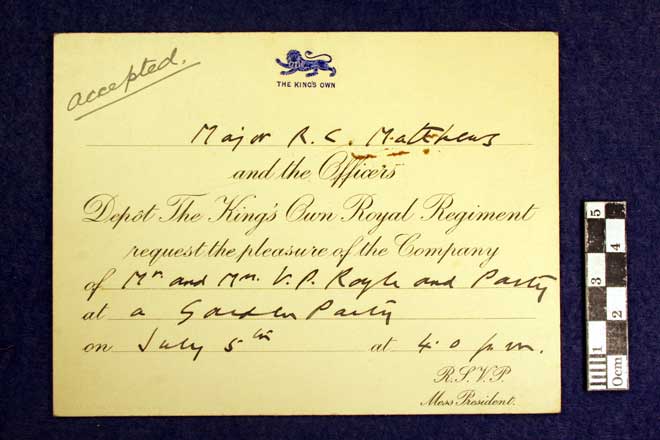 accepted.
THE KING'S OWN
Major R. C. Matthews
and the Officers
Depôt The King's Own Royal Regiment
request the pleasure of the Company
of Mr and Mrs. V. P. Royle and Party
at a Garden Party
on July 5th at 4.0 p.m.
R.S.V.P.
Mess President.
5
4
3
2
1
0cm